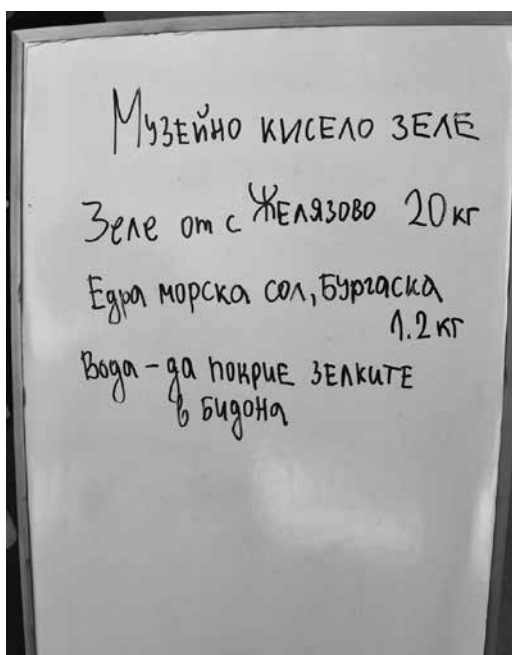 Музейно кисело зеле
Зеле от с Желязово 20 кг
Едра морска сол, Бургаска
1.2 кг
Вода – да покрие зелките
в бидона